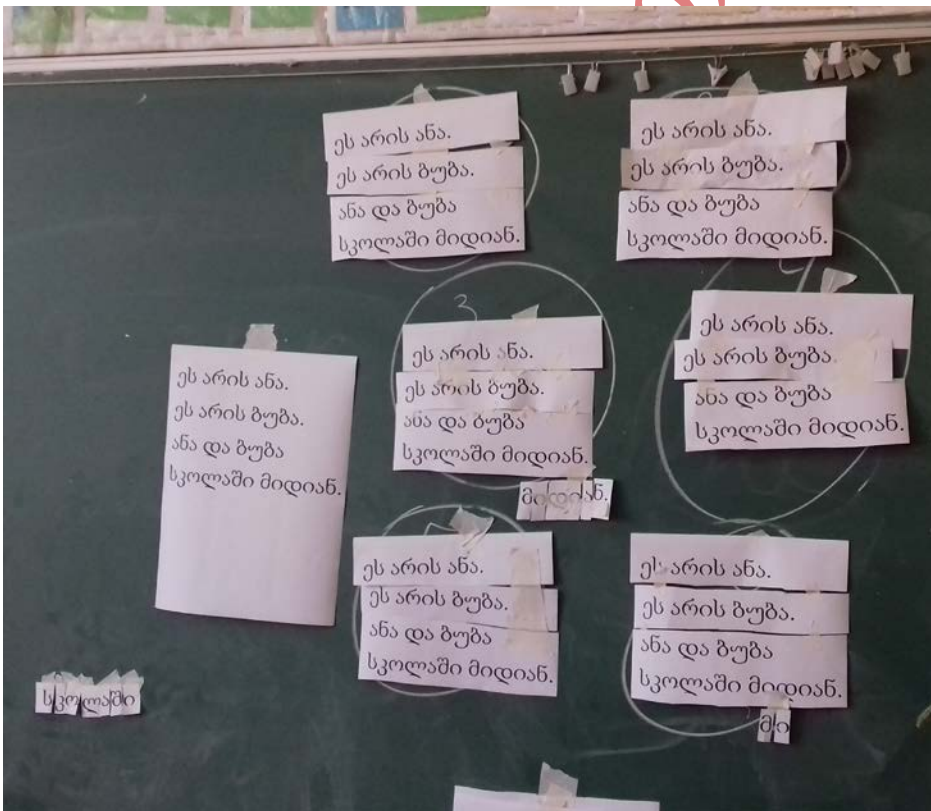 ეს არის ანა.
ეს არის ბუბა.
ანა და ბუბა
სკოლაში მიდიან.
ეს არის ანა.
ეს არის ბუბა.
ანა და ბუბა
სკოლაში მიდიან.
ეს არის ანა.
ეს არის ბუბა.
ანა და ბუბა
სკოლაში მიდიან.
3
ეს არის ანა.
ეს არის ბუბა.
ანა და ბუბა
სკოლაში მიდიან.
მიდიან.
ეს არის ანა.
ეს არის ბუბა.
ანა და ბუბა
სკოლაში მიდიან.
ეს არის ანა.
ეს არის ბუბა.
ანა და ბუბა
სკოლაში მიდიან.
ეს არის ანა.
ეს არის ბუბა.
ანა და ბუბა
სკოლაში მიდიან.
მი
სკოლაში